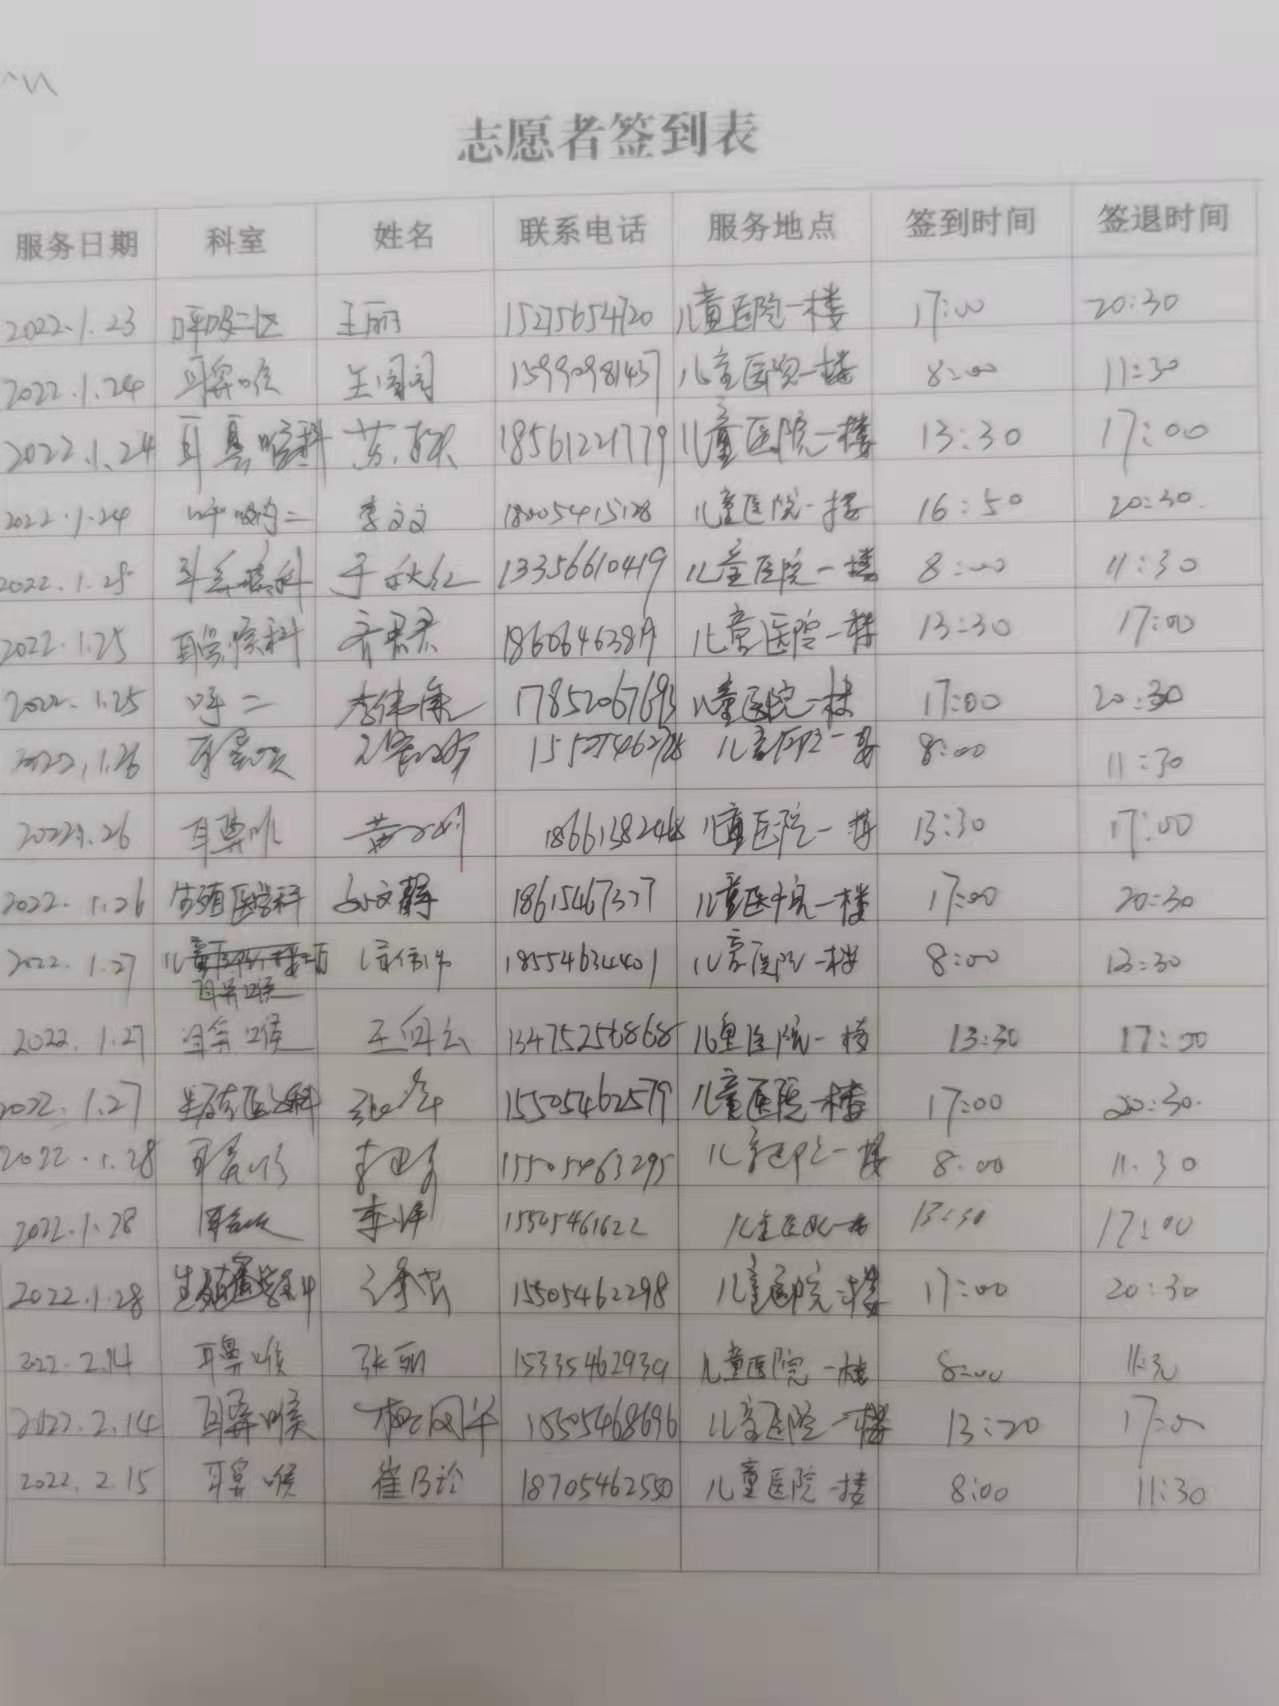 志愿者签到表
服务日期 科室 姓名 联系电话 服务地点 签到时间 签退时间
2022.1.23 呼吸二区 王丽 15275654720 儿童医院一楼 17:00 20:30
2022.1.24 耳鼻喉 王阁阁 15990981437 儿童医院一楼 8:00 11:30
2022.1.24 耳鼻喉科 18561221779 儿童医院一楼 13:30 17:00
2022.1.24 呼吸内二 李文文 18005415128 儿童医院一楼 16:50 20:30
2022.1.25 耳鼻喉科 于秋红 13356610419 儿童医院一楼 8:00 11:30
2022.1.25 耳鼻喉科 齐君君 儿童医院一楼 13:30 17:00
2022.1.25 呼二 李伟康 17852067693 儿童医院一楼 17:00 20:30
2022.1.26 耳鼻喉 儿童医院一楼 8:00 11:30
2022.1.26 耳鼻喉 儿童医院一楼 13:30 17:00
2022.1.26 生殖医学科 18615467377 儿童医院一楼 17:00 20:30
2022.1.27 18554634401 儿童医院一楼 8:00 13:30
耳鼻喉
2022.1.27 耳鼻喉 儿童医院一楼 13:30 17:00
2022.1.27 生殖医学科 15505462579 儿童医院一楼 17:00 20:30
2022.1.28 耳鼻喉 15505463295 儿童医院一楼 8:00 11:30
2022.1.28 耳鼻喉 李洋 15505461622 儿童医院一楼 13:30 17:00
2022.1.28 生殖医学科 15505462298 儿童医院一楼 17:00 20:30
2022.2.14 耳鼻喉 张丽 15335462939 儿童医院一楼 8:00 11:30
2022.2.14 耳鼻喉 15505468696 儿童医院一楼 13:20 17:00
2022.2.15 耳鼻喉 崔乃珍 18705462550 儿童医院一楼 8:00 11:30